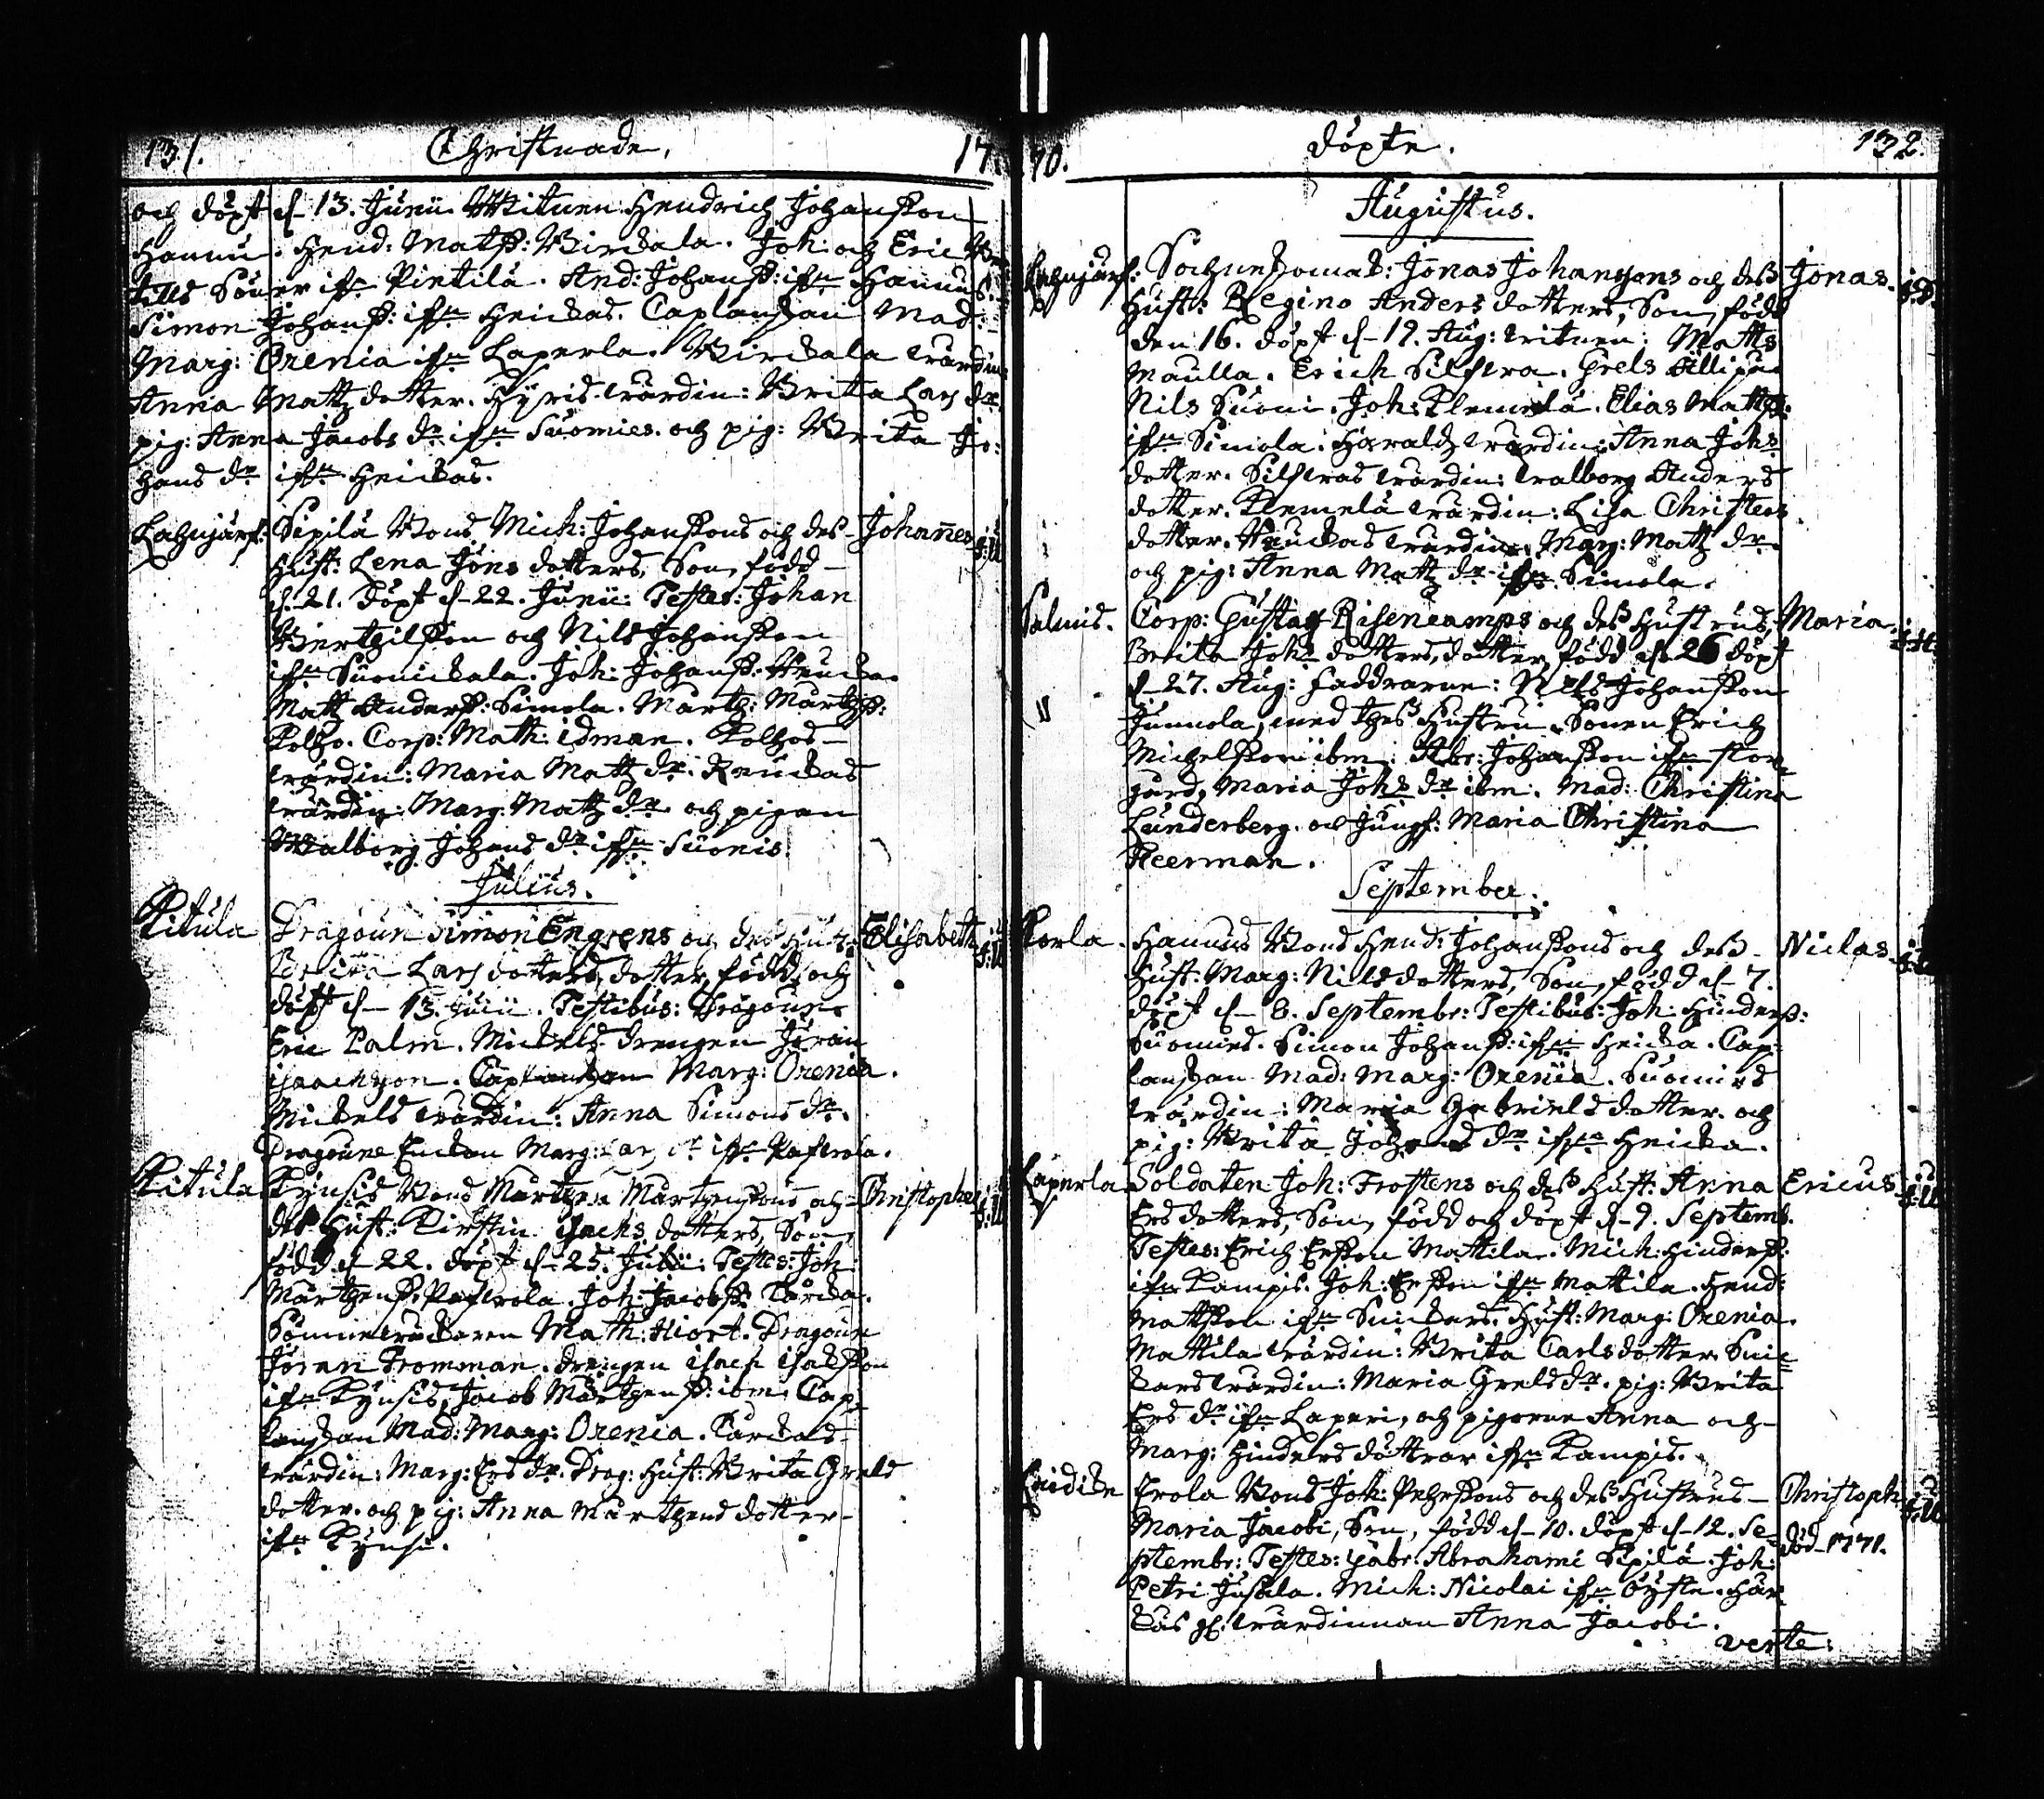 131. Christnade. 17
och döpt d. 13. Junii Witnen Hendrich Johansson
Hannu. Hend: Matss: Birckala. Joh: och Eric
Söner ifr Pietilä. And: Johanss: ifrn Hannus.
Simon Johanss: ifrn Heickas. Caplanskan Mad:
Marg: Orenia ifrn Laperla. Birckala wärdin:
Anna Mattz dotter. Hyris wärdin: Brita Lars dr.
pig: Anna Jacobs dr ifrn Suomies. och pig: Brita Jo:
hans dr ifrn Heickas.
Lahnjärf: Sepilä Bond. Mich: Johanssons och des Johannes
Hust: Lena Jöns dotters, Son, född
d. 21. döpt d. 22. Junii. Testes: Johan
Berthilsson och Nils Johansson
ifrn Suonickala. Joh: Johanss:
Matz Anderss: Simola. Martz: Martzss:
Kolho. Corp: Math: idman. Kolhos
wärdin: Maria Mattz dr.
wärdin: Marg: Mattz dr. och pigan
Walborg Johans dr ifrn Suonis.
Julius.
Kitula Dragoun Simon Engrens och des Hust: Elisabeth
Lars dotters, dotter, född och
döpt d. 13. Julii. Testibus: Dragoun
Eric Palm. Mickels drengen Jöran
isaachson. Caplanskan Marg: Orenia.
Mickels wärdin: Anna Simons dr.
Dragoune Enckan Marg: Lars dr ifrn Paferola.
Kitula Kynsis Bond Martzen Martzenssons och Christopher
des Hust: Kirstin isachs dotters, Son,
född d. 22. döpt d. 25. Julii: Testes: Joh:
Märtzenss: Paferola. Joh: Jacobss: Kärcka.
Math: Hiort. Dragoun
Jöran Fromman. drengen isach isaksson
ifrn Kynsis, Jacob Märtzenss: ibm. Cap-
lanskan Mad: Marg: Orenia. Kärckas
wärdin: Marg: Ers dr. Drag: Hust: Brita Grels
dotter. och pig: Anna Martzens dotter
ifrn Kynsi.
70. döpte. 132.
Augustus.
Lahnjärf: Sochneskomak: Jonas Johanssons och dess Jonas.
Hust: Regina Anders dotters, Son, född
den 16. döpt d. 19. Aug: witnen: Matts
Maulla. Erich Silfvra. Grels Filpus
Nils Suoni. Joh: Klemelä. Elias Mattss:
ifrn Simola. Haralds wärdin: Anna Johs
dotter. Silfvras wärdin: walborg Anders
dotter. Klemelä wärdin: Lisa Christers
dotter. wärdin: Marg: Mattz dr.
och pig: Anna Mattz dr ifrn Simola.
Salmis. Corp: Gustaf Risencamps och des Hustrus, Maria.
Brita Johs dotters, dotter, född d. 26 döpt
d. 27. Aug: Faddrarne: Nils Johansson
Junnola, med thess Hustru. Sonen Erich
Michelsson ibm. Abr: Johansson ifrn stor-
gård, Maria Johs dr ibm. Mad: Christina
Lunderberg. och Jungf: Maria Christina
Heerman.
September.
Korla. Hannus Bond Hend: Johanssons och dess Niclas.
Hust: Marg: Nils dotters, Son, född d. 7.
döpt d. 8. Septembr: Testibus: Joh: Hinderss:
Suomies. Simon Johanss: ifrn Heicka. Cap-
lanskan Mad: Marg: Orenia. Suomies
wärdin: Maria Gabriels dotter. och
pig: Brita Johans dr ifrn Heicka.
Laperla Soldaten Joh: Frostens och dess Hust: Anna Ericus
Ers dotters, Son, född och döpt d. 9. Septemb.
Testes: Erich Ersson Mattila. Mich: Hinderss:
ifrn Kampis. Joh: Ersson ifrn Mattila. Hend:
Mattsson ifrn Suickars. Hust: Marg: Orenia.
Mattila wärdin: Brita Carls dotter. Suic-
kars wärdin: Maria Grels dr. pig: Brita
Ers dr ifrn Laperi, och pigorne Anna och
Marg: Hinders döttrar ifrn Kampis.
Erola Bond Joh: Pehrssons och des Hustrus Christoph:
Maria Jacobi, Son, född d. 10. döpt d. 12. Se- död 1771.
ptembr: Testes: Gabr: Abrahami Sipilä. Joh:
Petri Jusala. Mich: Nicolai ifrn Öyste. Här-
käs gl: wärdinnan Anna Jacobi.
verte: